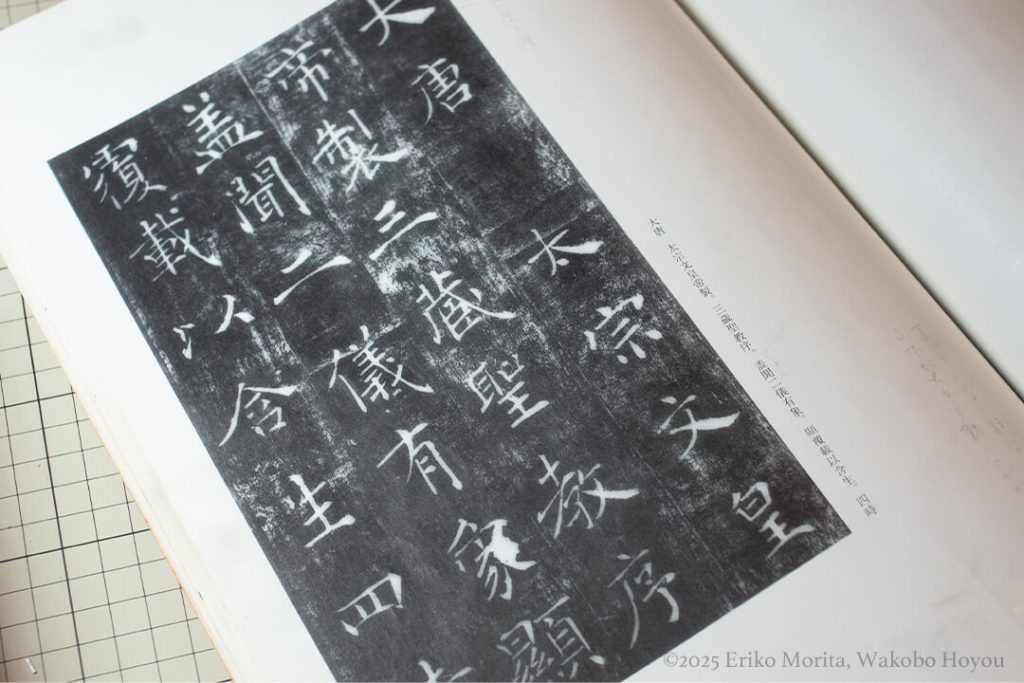 大唐 太宗文皇
帝製三蔵聖教序
盖聞二儀有象顯
覆載以含生四
大唐 太宗文皇帝製。三蔵聖教序。蓋聞二儀有象。顯覆載以含生。四時
©2025 Eriko Morita, Wakobo Hoyou